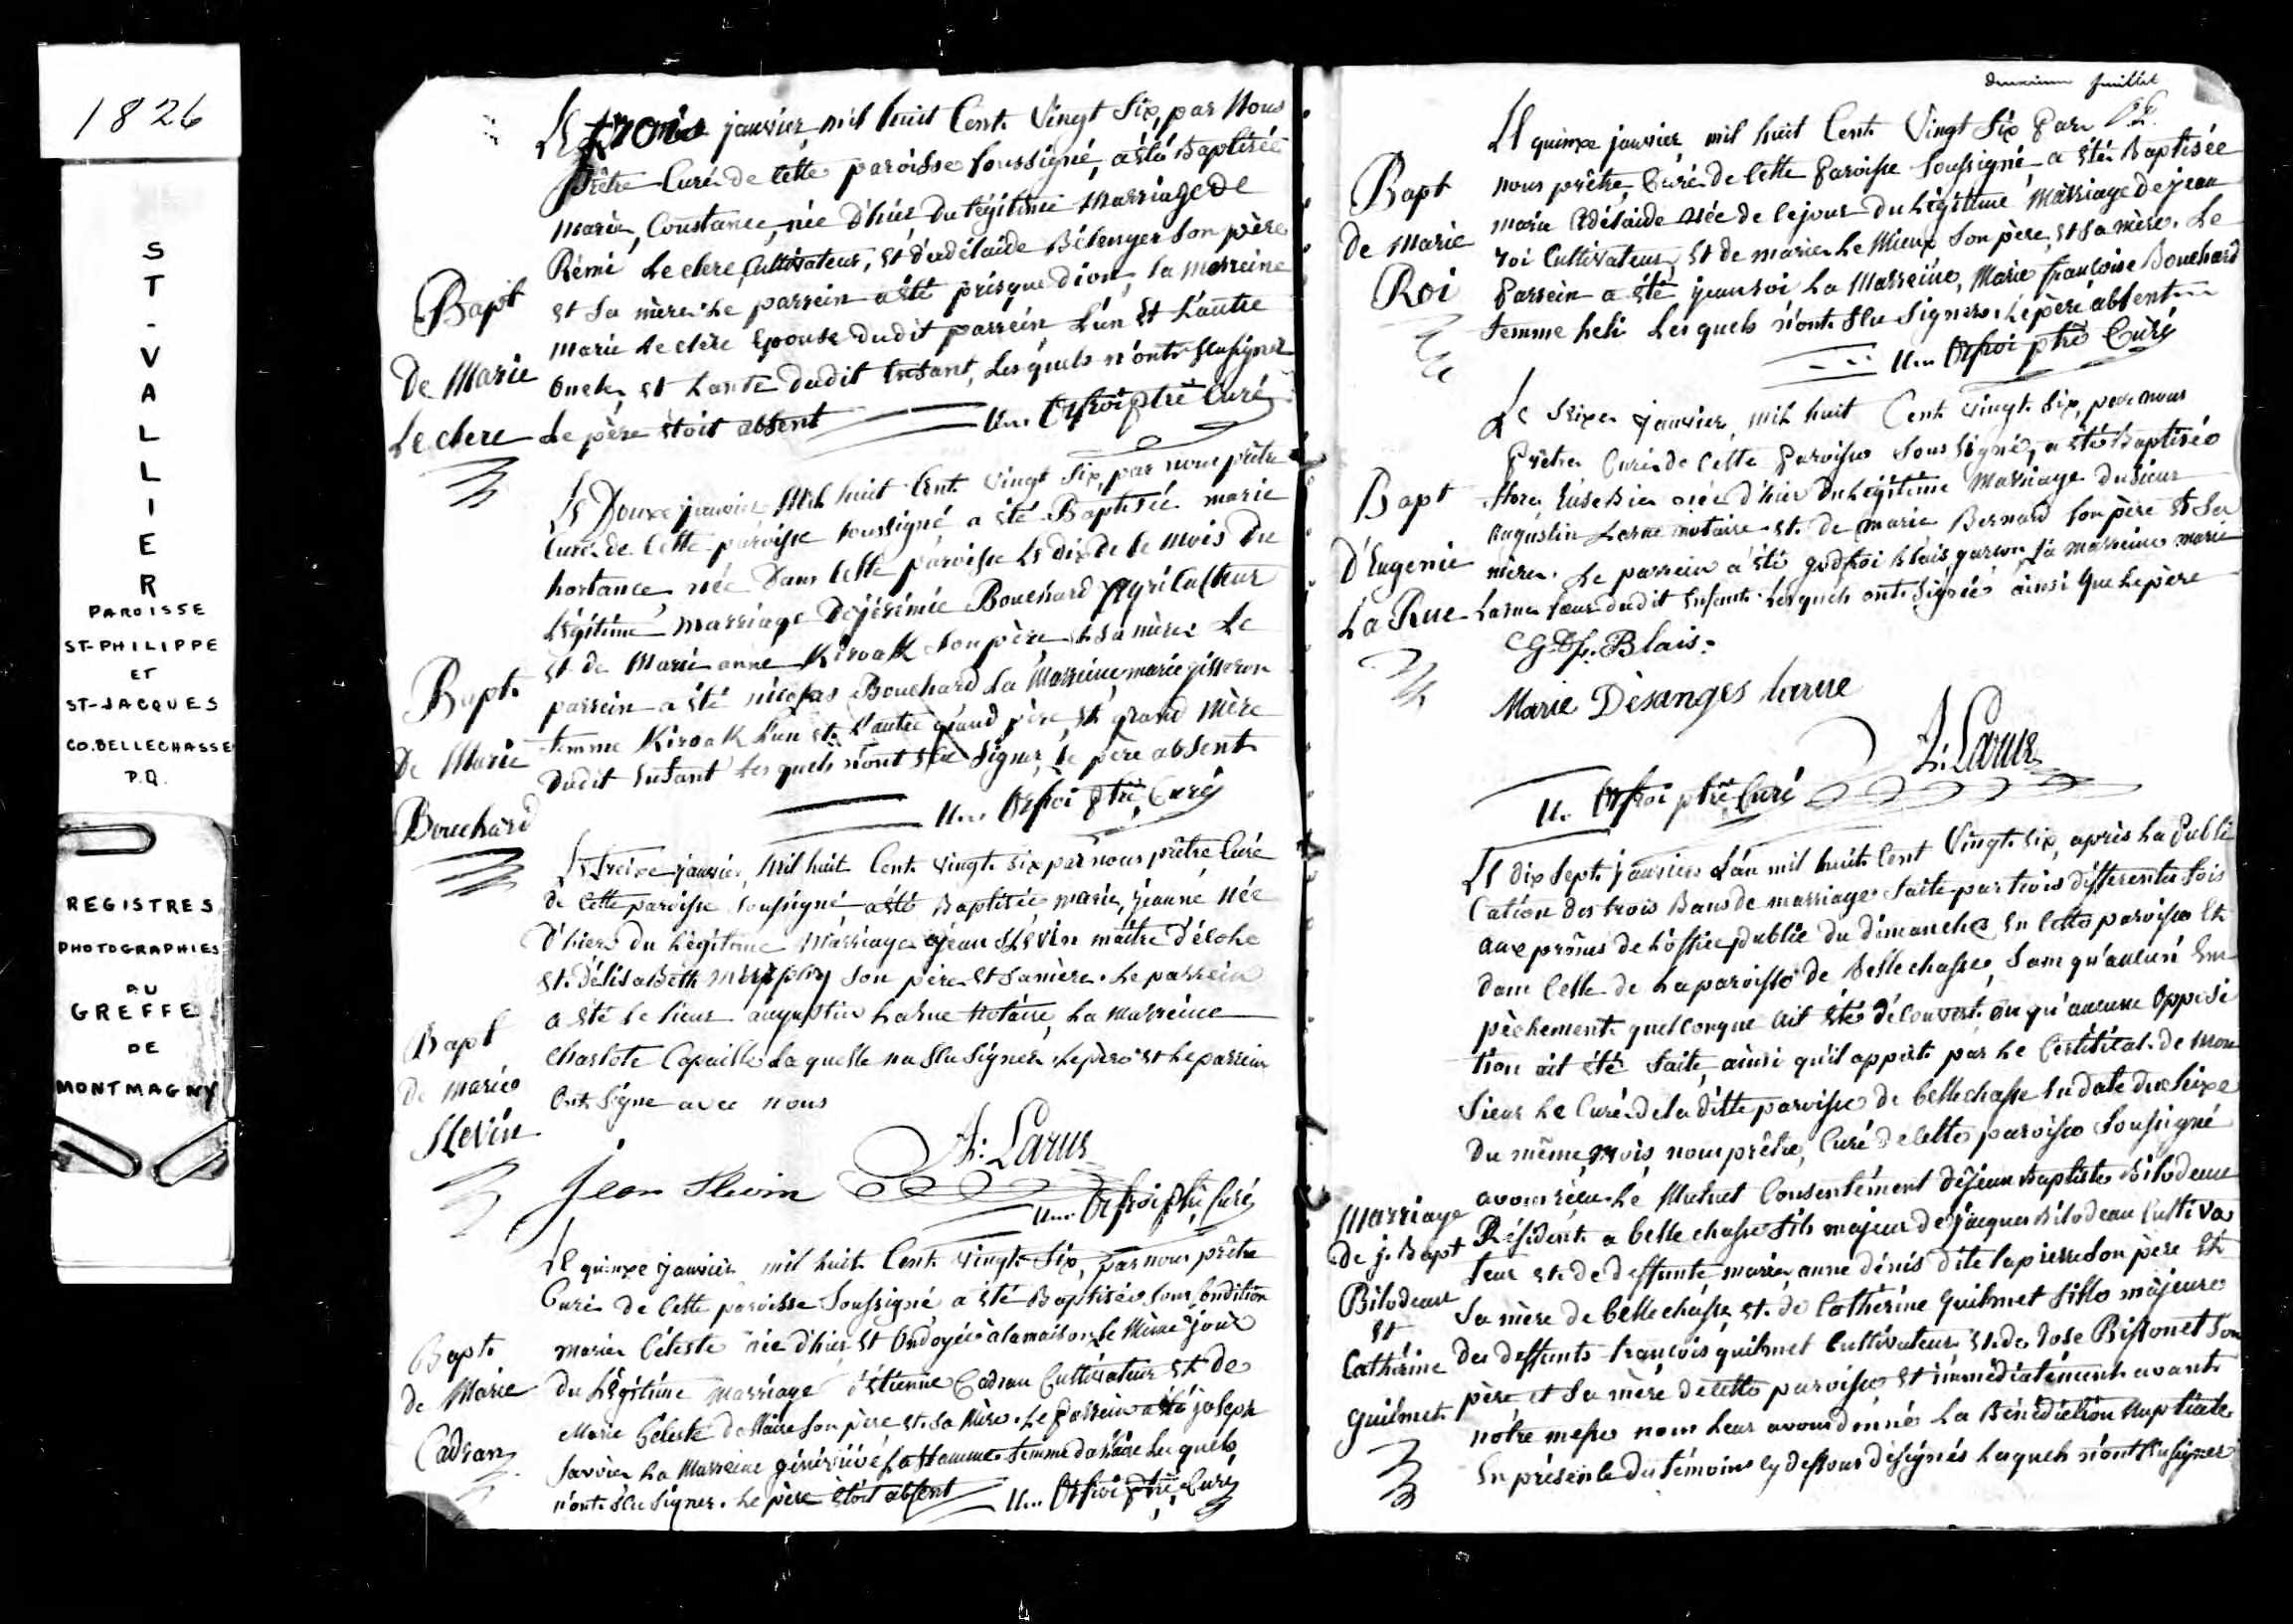 1826
S
T
-
V
A
L
L
I
E
R
PAROISSE
ST-PHILIPPE
ET
ST-JACQUES
CO. BELLECHASSE
P.Q.
REGISTRES
PHOTOGRAPHIES
AU
GREFFE
DE
MONTMAGNY
Le trois janvier mil huit Cent Vingt Six, par Nous
prêtre Curé de Cette paroisse soussigné, a été Baptisée
marie, Constance, née d'hier du légitime Marriage de
Rémi Le clere Cultivateur, et d'adélaide Bélenger Son père
et Sa mère. Le parrein a été prisque dion, la marreine
marie Le clere Epouse dudit parrein L'un et L'autre
Oncle, et tante dudit Enfant, Lesquels n'ont Scu signer
Le père étoit absent
U... Orfroi ptre Curé
Bapt
De Marie
Le clere
Le Douze janvier Mil huit Cent Vingt Six, par nous prêtre
Curé de Cette paroisse soussigné a été Baptisée marie
hortance, née Dans Cette paroisse Le dix de Ce mois Du
Légitime marriage De jérémie Bouchard Agriculteur
et de Marie anne Kiroak Son père, et Sa mère Le
parrein a été nicolas Bouchard La Marreine marie
femme Kiroak L'un et L'autre grand père, et grand Mère
dudit Enfant Lesquels n'ont Scu Signer, Le père absent
U... Orfroi ptre Curé
Bapt.
De Marie
Bouchard
Le treize janvier, Mil huit Cent Vingt Six par nous prêtre Curé
de Cette paroisse soussigné a été Baptisée marie, jeanne Née
D'hier du Légitime Marriage de jean Slevin maître d'école
et d'élisabeth murphy Son père et Sa mère. Le parrein
a été Le Sieur augustin Larue Notaire, La marreine
Charlote Copaille La quelle n'a Scu Signer. Le père et Le parrein
Ont Signé avec nous
A: Larue
Jean Slevin
U... Orfroi Ptre Curé
Bapt
de Marie
Slevin
Le quinze janvier mil huit Cent Vingt Six, par nous prêtre
Curé de Cette paroisse Soussigné a été Baptisée Sous Condition
marie Céleste née d'hier et Ondoyée à la maison le Même jour
du Légitime marriage d'étienne Cadran Cultivateur et de
Marie Céleste Dallaire Son père, et Sa Mère. Le parrein a été joseph
Savoie La Marreine génévieve Laflamme femme dallaire Lesquels
n'ont Scu Signer. Le père étoit absent
U... Orfroi ptre Curé
Bapt.
de Marie
Cadran
deuxieme feuillet
Le quinze janvier mil huit Cent Vingt Six Par
nous prêtre, Curé de Cette Paroisse Soussigné a été Baptisée
marie Adélaide née de Ce jour du Légitime Marriage de jean
roi Cultivateur, et de marie Le Mieux Son père, et Sa mère. Le
Parrein a été jean roi La Marreine, Marie françoise Bouchard
femme heli Lesquels n'ont Scu Signer. Le père absent
U... Orfroi ptre Curé
Bapt
De Marie
Roi
Le Seize janvier, mil huit Cent Vingt Six, par nous
Prêtre Curé de Cette Paroisse Sous Signé, a été Baptisée
flore, Eusebie née d'hier du Légitime Marriage du Sieur
augustin Larue notaire et de marie Bernard Son père et Sa
mère. Le parrein a été godfroi Blais garçon, La marreine marie
Larue Sœur dudit Enfant Lesquels ont Signés ainsi que Le père
G Df. Blais.
Marie Désanges Larue
A: Larue
U.. Orfroi ptre Curé
Bapt
D'Eugenie
La Rue
Le dix Sept janvier L'an mil huit Cent Vingt Six, après La Publi
Cation des trois Bans de marriage faite par trois différentes fois
aux prônes de L'office public du dimanche En Cette paroisse et
dans Celle de La paroisse de Bellechasse, Sans qu'aucun Em
pêchement quelconque ait été découvert Ou qu'aucune Opposi
tion ait été faite, ainsi qu'il appert par Le Certificat de Mon
Sieur Le Curé de la ditte paroisse de bellechasse En date du Seize
Du même mois, nous prêtre, Curé de Cette paroisse Soussigné
avons reçu Le Mutuel Consentement de jean Baptiste Bilodeau
Résident a bellechasse fils majeur de jacques Bilodeau Cultiva
teur et de deffunte marie, anne dénis dite lapierre Son père et
Sa mère de bellechasse, et de Catherine Guilmet fille majeure
des deffunts françois guilmet Cultivateur et de Jose Bissonet Son
père, et Sa mère de Cette paroisse et immédiatement avant
nôtre messe nous Leur avons donné La Bénédiction Nuptiale
En présence des témoins cy dessous désignés Lesquels n'ont Scu signer
Marriage
De j. Bapt
Bilodeau
et
Catherine
Guilmet